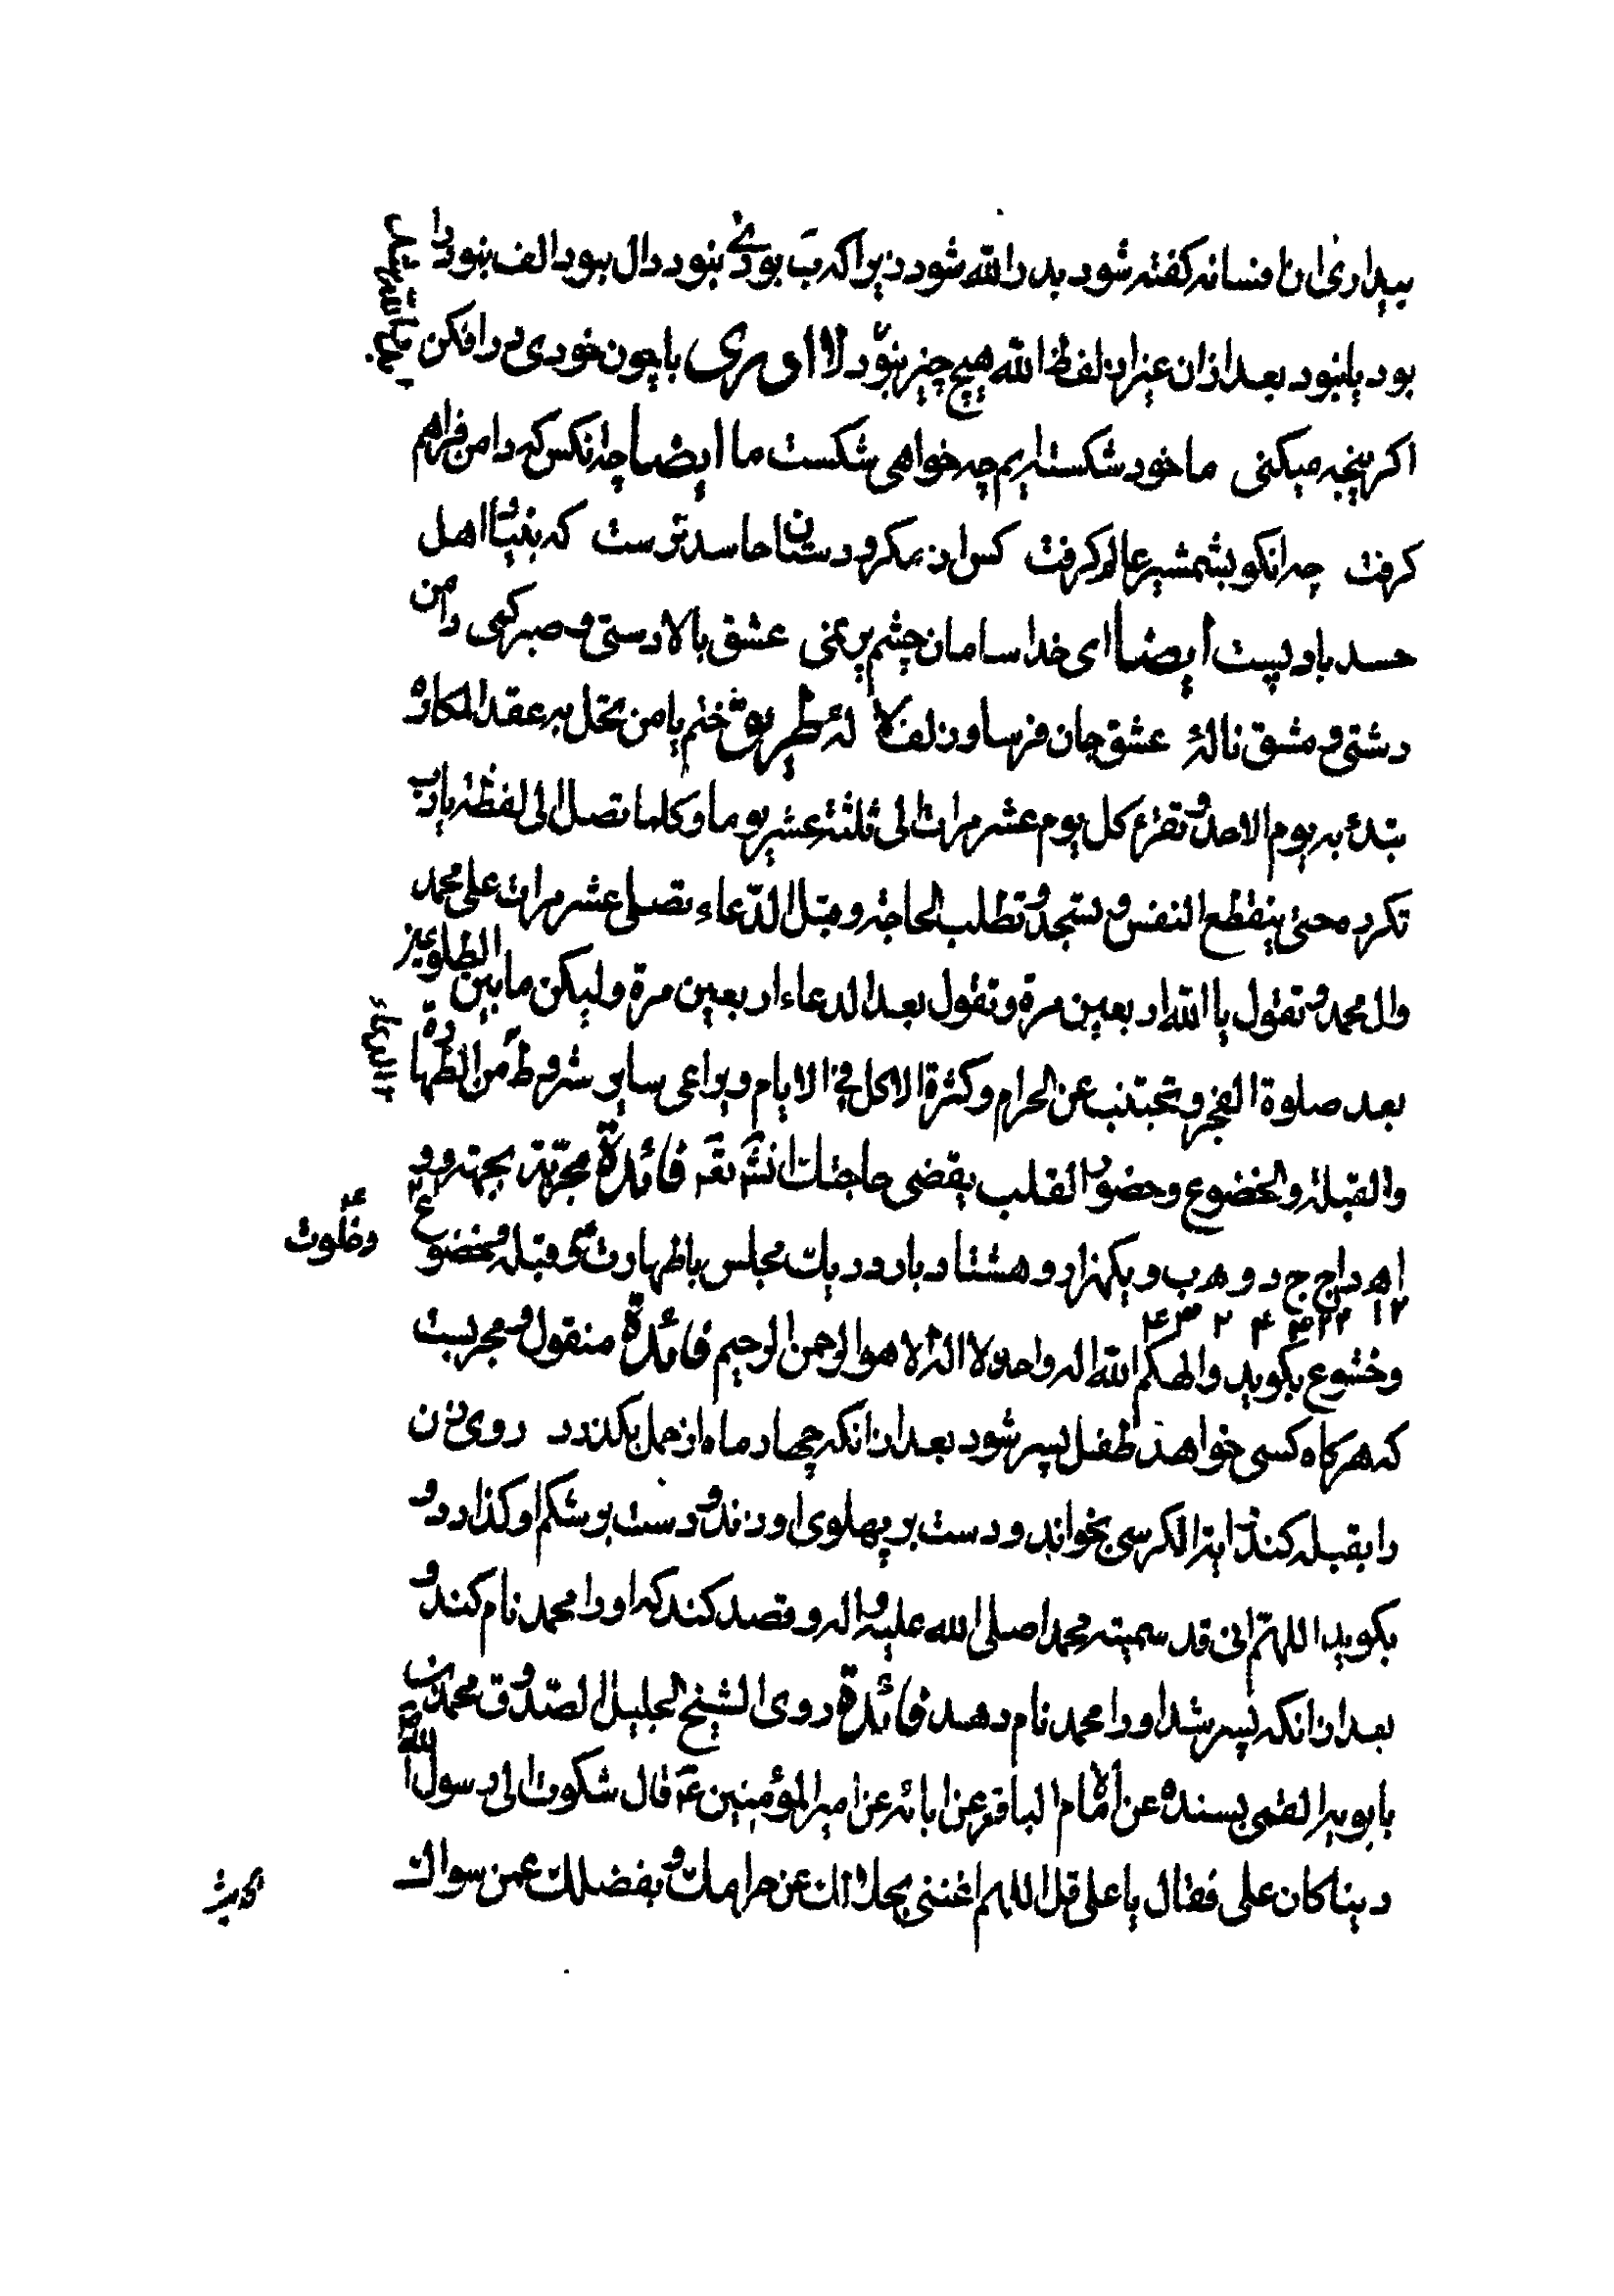 بیداری ان افسانه کفته شود بدر الله شود زیرا که ب بود ی نبود دال ببود الف نبود را
بود یا نبود بعد ازان غیر از لفظ الله هیچ چیز نبود لا ادری با چون خودی در افکن
اکر پنجه میکنی ما خود شکسته ایم چه خواهی شکست ما ایضا چه انکس که دامن فراهم
کرفت چه انکو بشمشیر عالم کرفت کس از مکر و دستان حاسد ترست که بنیاد اهل
حسد باد پست ایضا ای خدا سامان چشم پر نمی عشق بالا دستی و صبر کمی دامن
دشتی و مشق نالهٔ عشق جان فرسا و زلف لا لهٔ طریق ختم یا من تحل به عقد المکاره
بندئ به یوم الاحد و تقرء کل یوم عشر مرات الی ثلثة عشر یوما و کلما تصل الی لفظة یا رب
تکرر حتی ینقطع النفس و تسجد و تطلب الحاجة و قبل الدعاء تصلی عشر مرات علی محمد
وال محمد و تقول یا الله اربعین مرة و تقول بعد الدعاء اربعین مرة ولیکن ما بین الطلوعین
بعد صلوة الفجر و تجتنب عن الحرام و کثرة الاکل فی الایام و یراعی سایر شروط من الطهارة
والقبلة والخضوع و حضور القلب یقضی حاجتک انش تع فائدة مجربة بجهة و و
ا ه د ا ج ج د و ه ب و یکهزار و هشتاد بار در یک مجلس با طهارت و قبله و خضوع
وخلوت
وخشوع بکوید والهکم الله اله واحد لا اله الا هو الرحمن الرحیم فائدة منقول و مجربست
که هرکاه کسی خواهد طفل پسر شود بعد از انکه چهار ماه از حمل بکذرد روی زن
را بقبله کند و ایة الکرسی بخواند و دست بر پهلوی او زند و دست بر شکم او کذارد و
بکوید اللهم انی قد سمیته محمدا صلی الله علیه و اله و قصد کند که او را محمد نام کند و
بعد از انکه پسر شد او را محمد نام دهد فائدة روی الشیخ الجلیل الصدوق محمد بن
بابویه القمی بسنده عن الامام الباقر عن ابائه عن امیر المؤمنین ع قال شکوت الی رسول الله
دینا کان علی فقال یا علی قل اللهم اغننی بحلالک عن حرامک و بفضلک عمن سواک